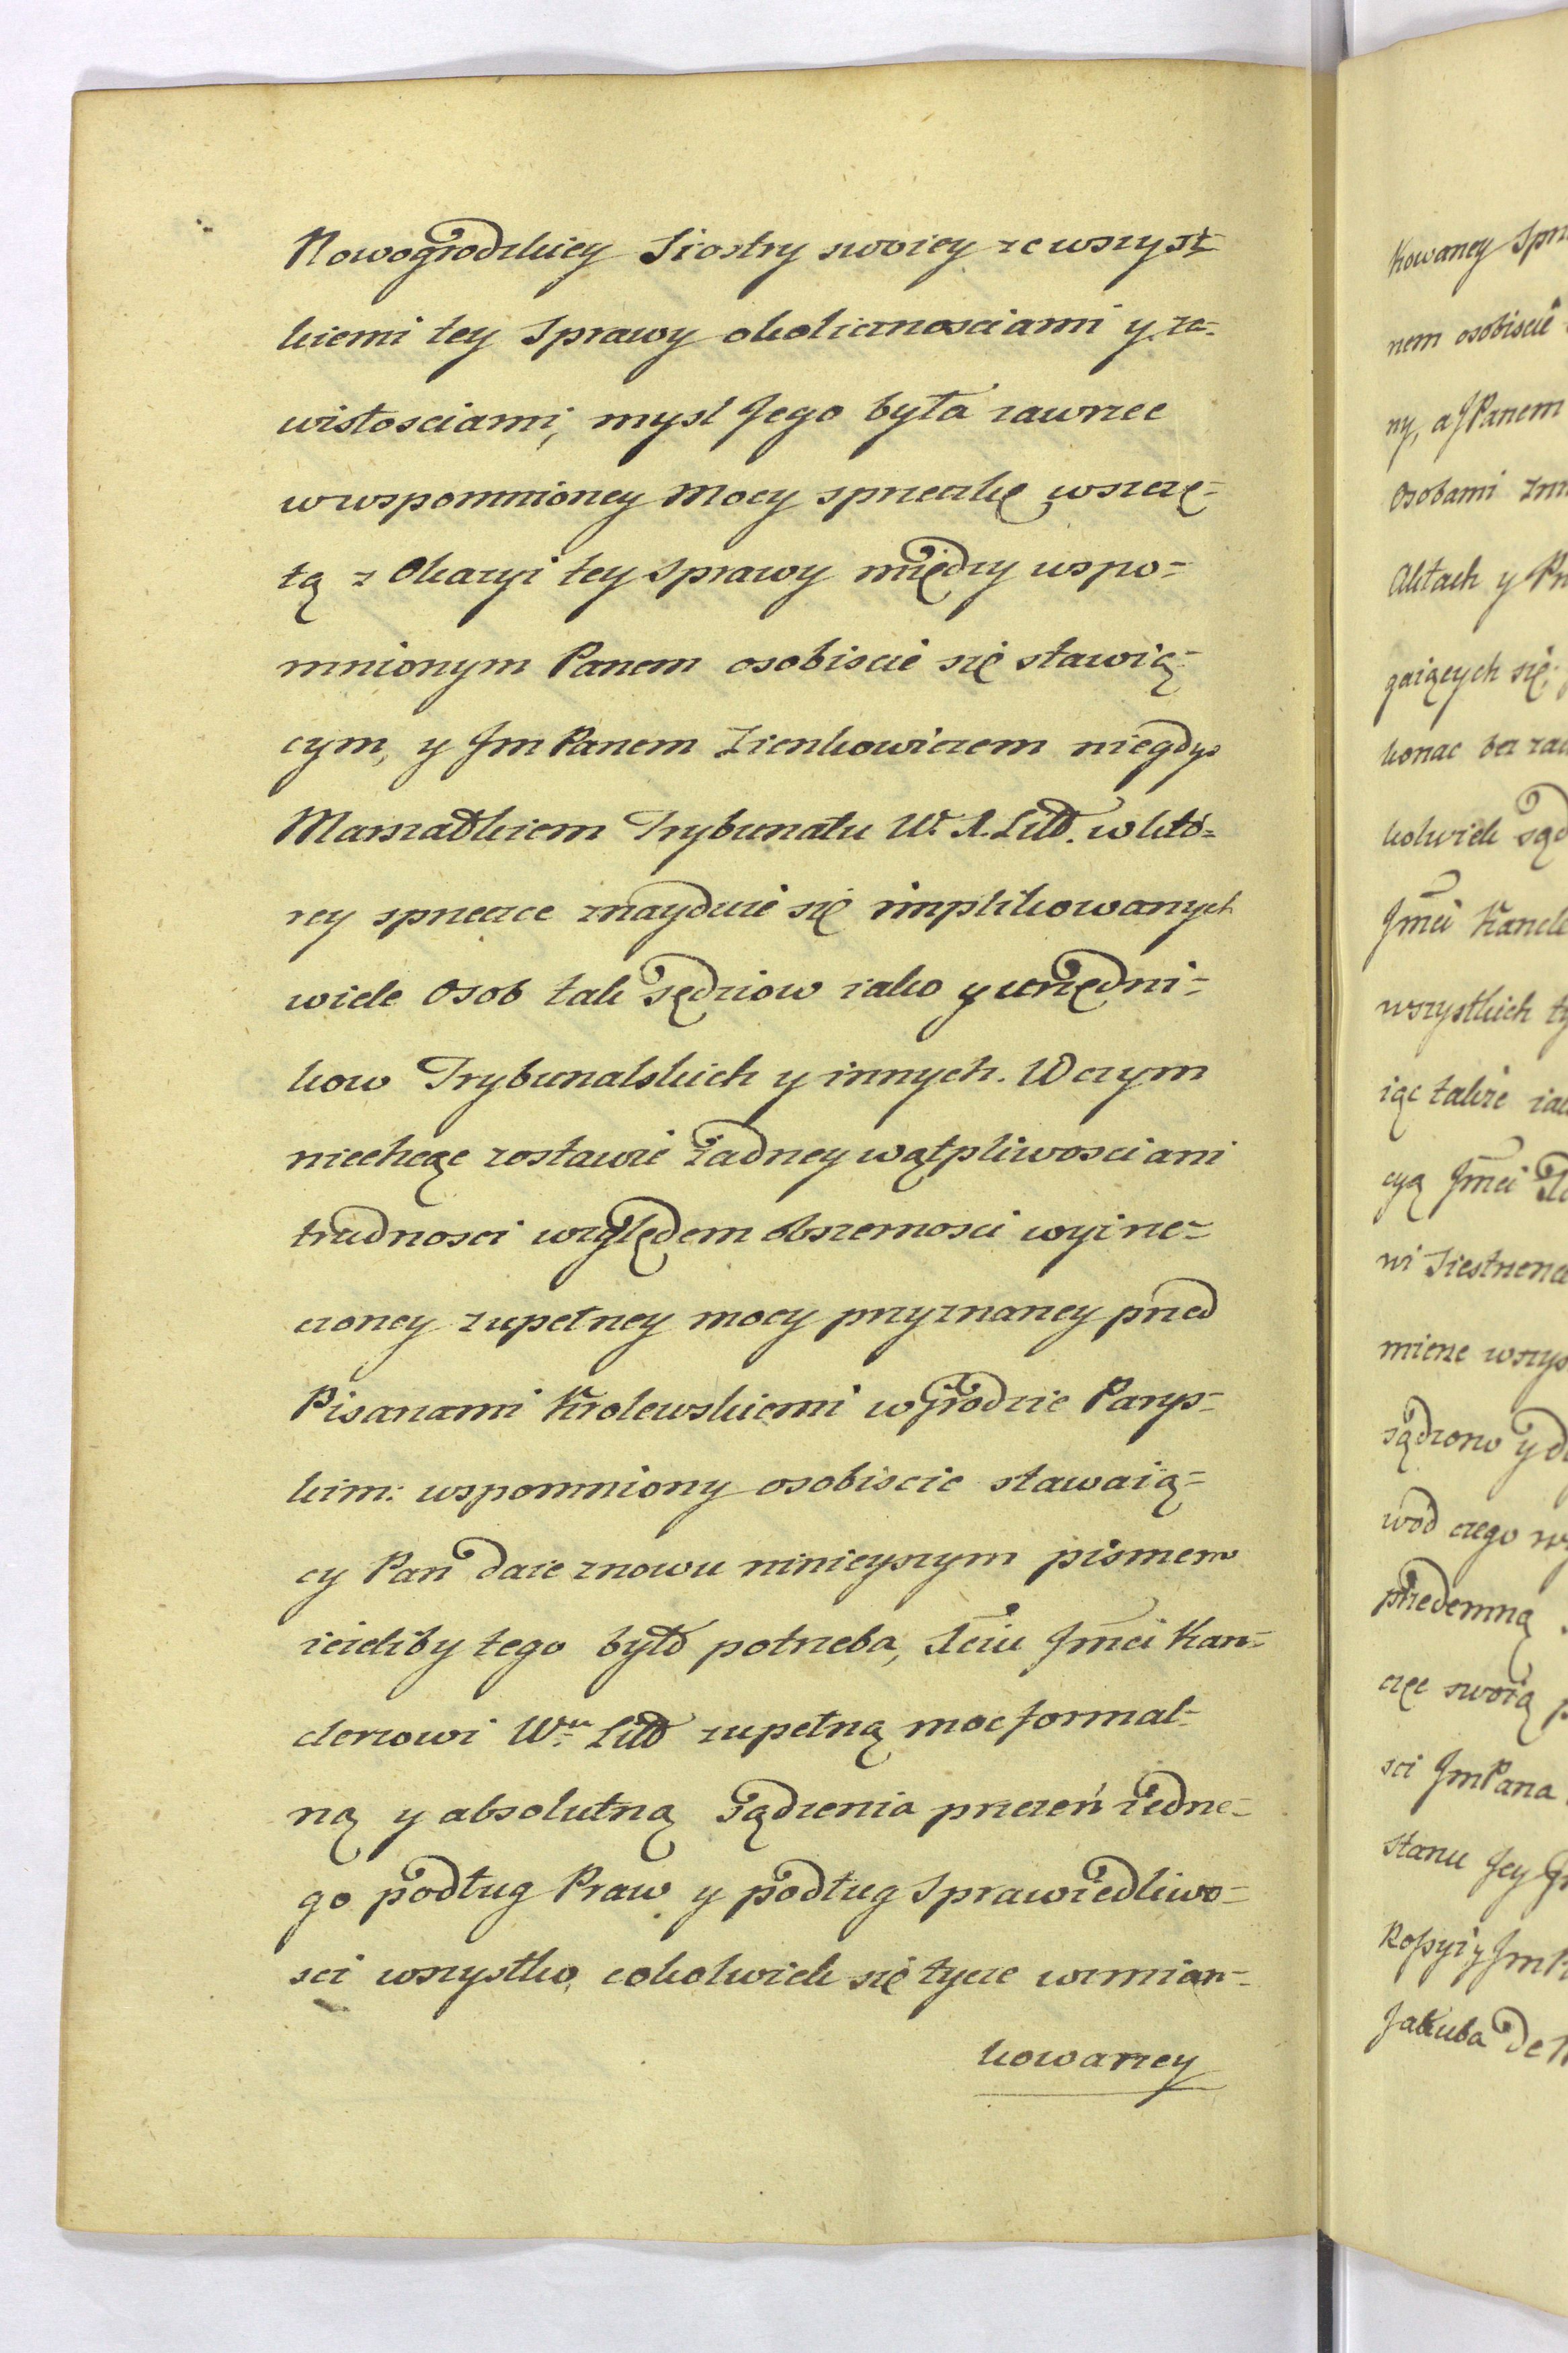 Nowogrodzkiey Siostry swoiey ze wszyst-
kiemi tey Sprawy okolicznosciami y za-
wisłosciami; mysl Jego była zawrzec
w wspomnioney Mocy sprzeczkę wszczę-
tą z Okazyi tey Sprawy między wspo-
mnionym Panem osobiscie się stawią-
cym, y Jm Panem Zienkowiczem niegdys
Marszałkiem Trybunału W. X. Litt. w któ-
rey sprzeczce znayduie się implikowanych
wiele Osob tak Sędziow iako y urzędni-
kow Trybunalskich y innych. W czym
niechcąc zostawić żadney wątpliwosci ani
trudnosci względem obszernosci wyż rze-
czoney zupełney mocy przyznaney przed
Pisarzami Krolewskiemi w Grodzie Parys-
kim: wspomniony osobiscie stawaią-
cy Pan daie znowu ninieyszym pismem
ieieliby tego było potrzeba, Xciu Jmci Kan-
clerzowi W. Litt zupełną moc formal-
ną y absolutną Sądzenia przezeń iedne-
go podług Praw y podług Sprawiedliwo-
sci wszystko, cokolwiek się tycze wzmian-
kowaney
kowaney
nem osobiscie
ny, a JPanem
Osobami
Aktach y
gaiących się;
konac bez
kolwiek
Jmci
wszystkich
iąc także
cyą Jmci
wi
mierze
sądzono y
wod czego
przedemną
częc swoią
sci JmPana
stanu Jey
Rossyi y
Jakuba De